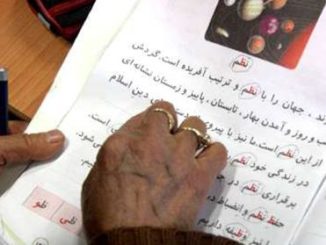 نظم
ند، جهان را با نظم و ترتیب آفریده است. گردش
شب و روز و آمدن بهار، تابستان، پاییز و زمستان نشانه‌ای
از این نظم است. ما نیز با پیروی دین اسلام
در زندگی خود نظم
برقراری نظم در
حفظ نظم و انضباط
وظیفه داریم
شود.
ظی ظو